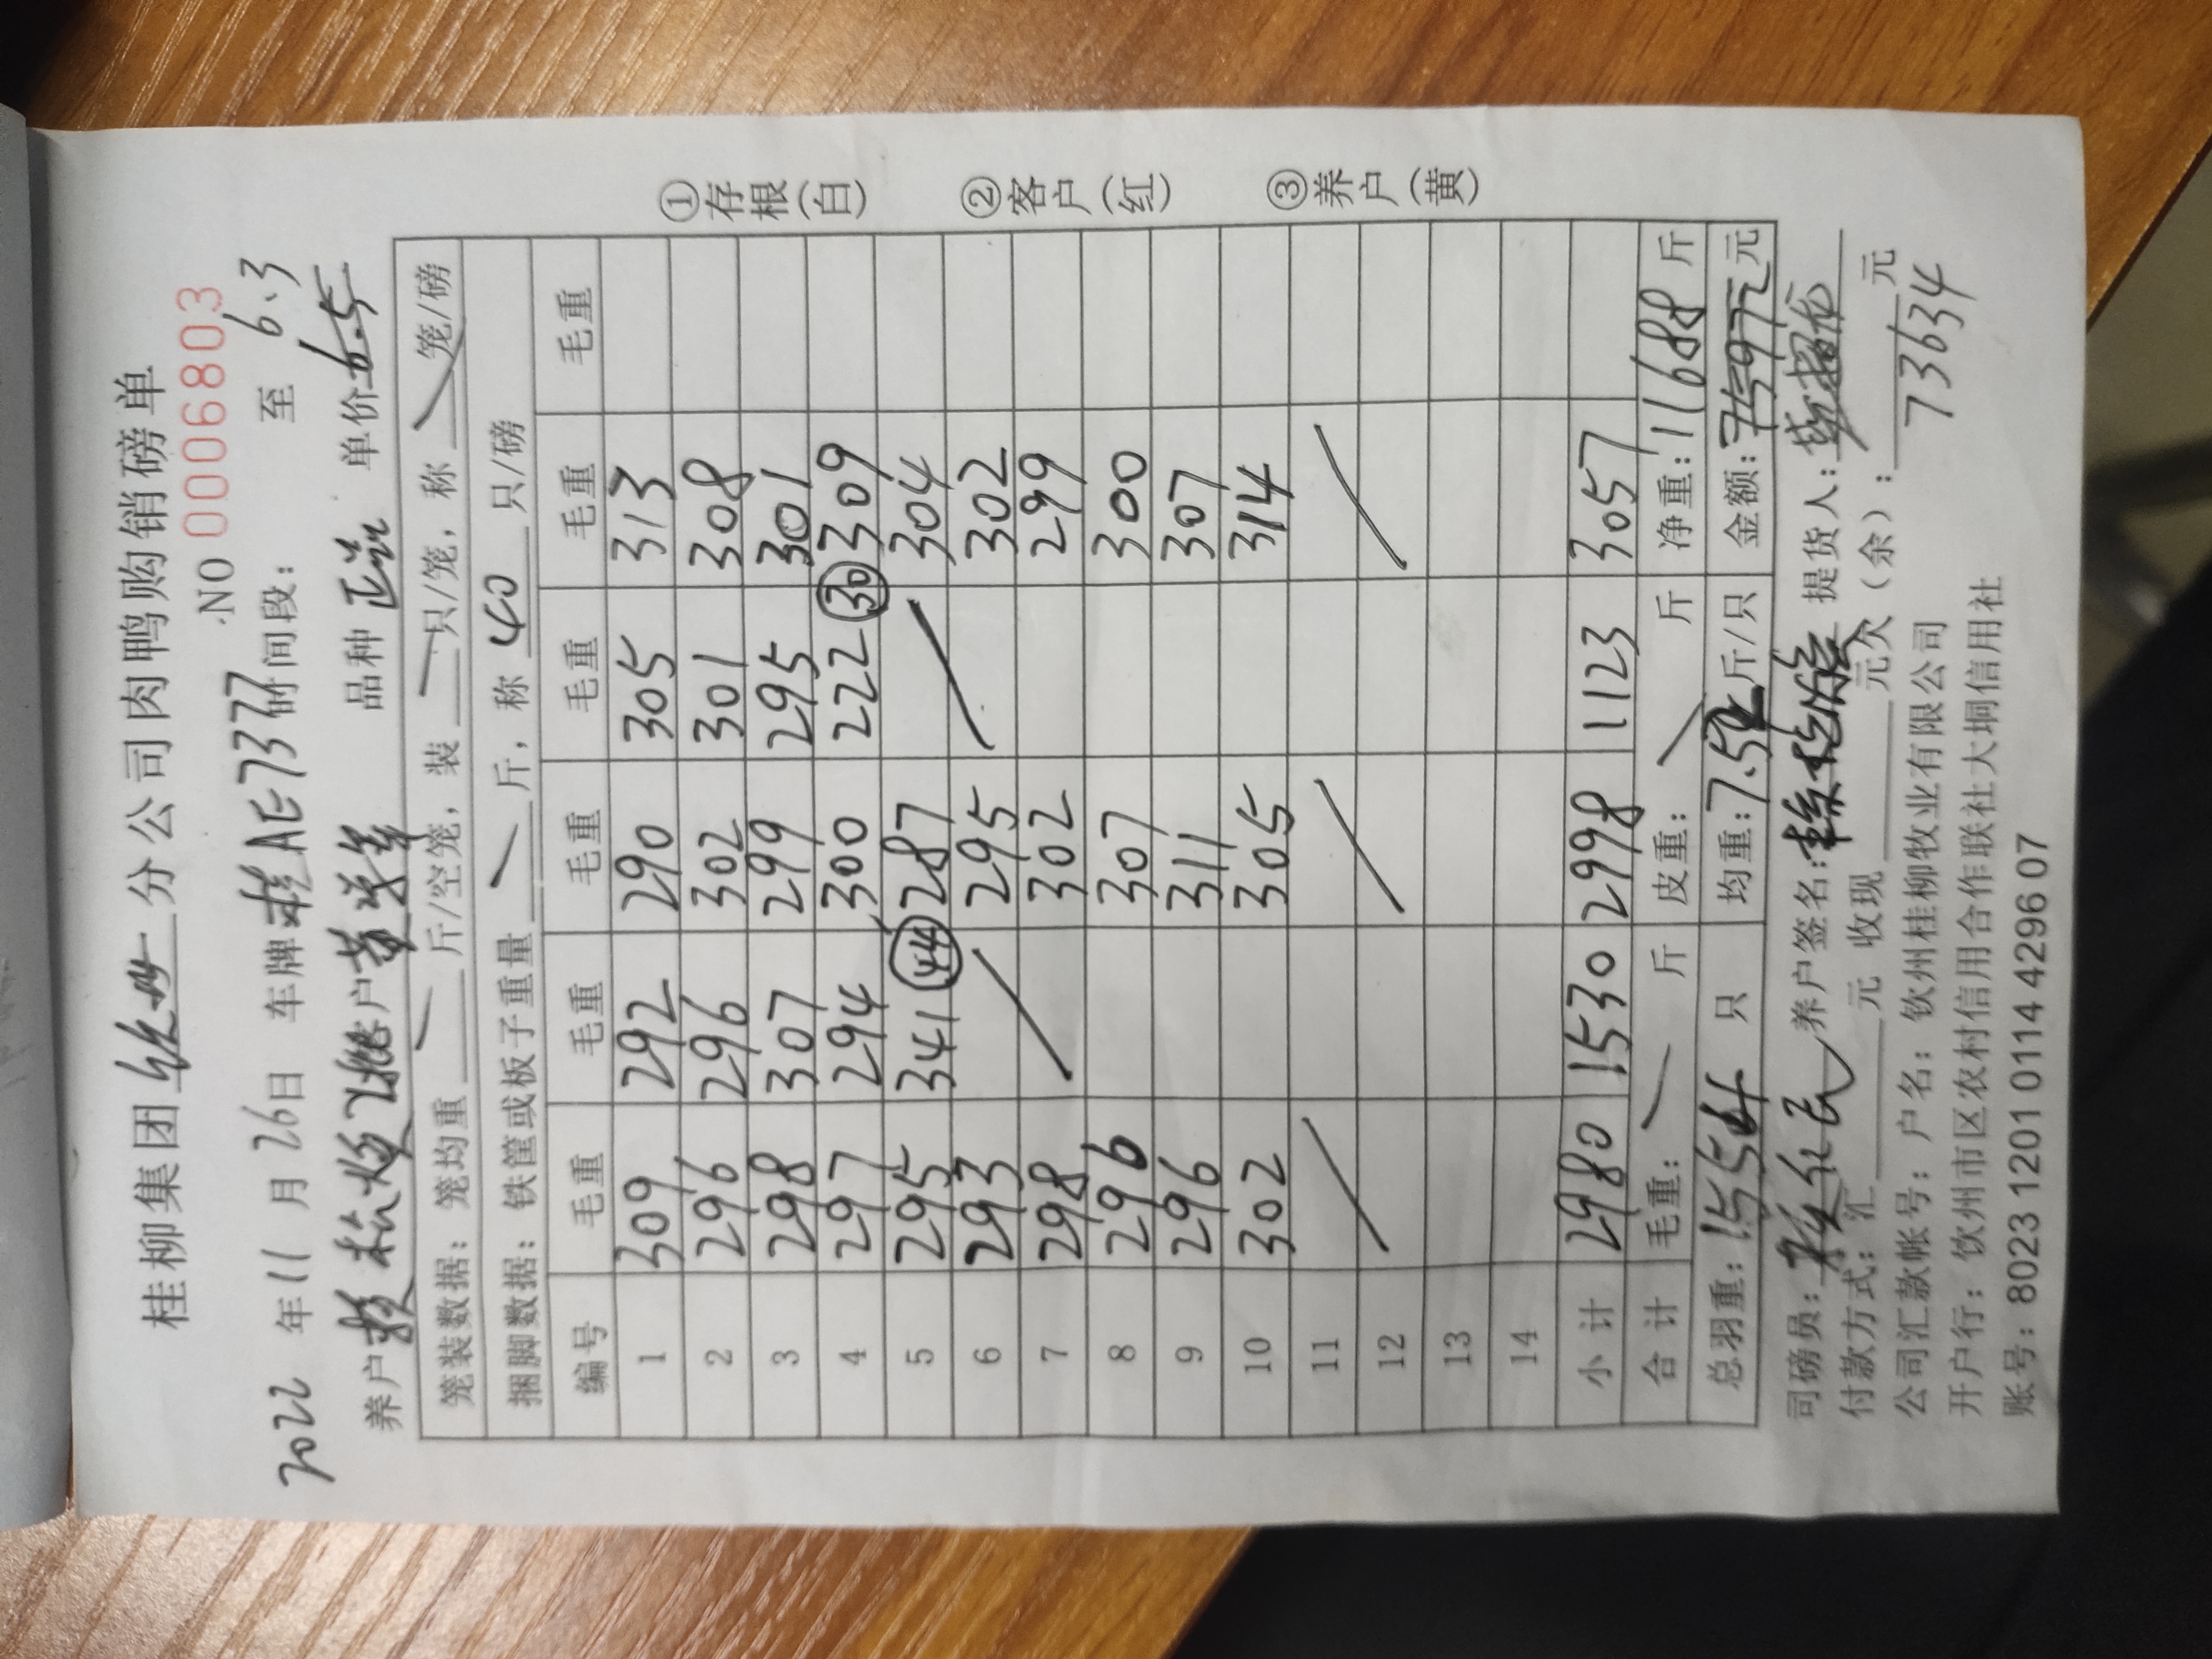 桂柳集团 钦州 分公司肉鸭购销磅单
NO 0006803
2022 年 11 月 26 日 车牌 桂AE737 时间段: 至 6.3
养户 客户 黄 品种 正品 单价 6.5
笼装数据: 笼均重 斤/空笼, 装 只/笼, 称 笼/磅
捆脚数据: 铁筐或板子重量 斤, 称 40 只/磅
编号 毛重 毛重 毛重 毛重 毛重 毛重
1 309 292 290 305 313
2 296 296 302 301 308
3 298 307 299 295 301
4 297 294 300 222 30 309
5 295 341 44 287 304
6 293 295 302
7 298 302 299
8 296 307 300
9 296 311 307
10 302 305 314
11
12
13
14
小计 2980 1530 2998 1123 3057
合计 毛重: 斤 皮重: 斤 净重: 11688 斤
总羽重: 1554 只 均重: 7.52 斤/只 金额: 元
司磅员: 养户签名: 提货人:
付款方式: 汇 元 收现 元欠(余): 元
73634
公司汇款帐号: 户名: 钦州桂柳牧业有限公司
开户行: 钦州市区农村信用合作联社大垌信用社
账号: 8023 1201 0114 4296 07
①存根(白) ②客户(红) ③养户(黄)